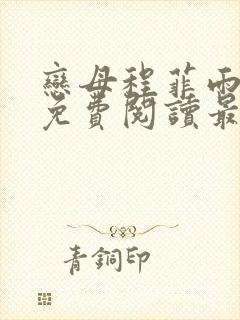 戀母程菲雨
免費閱讀最
青銅印